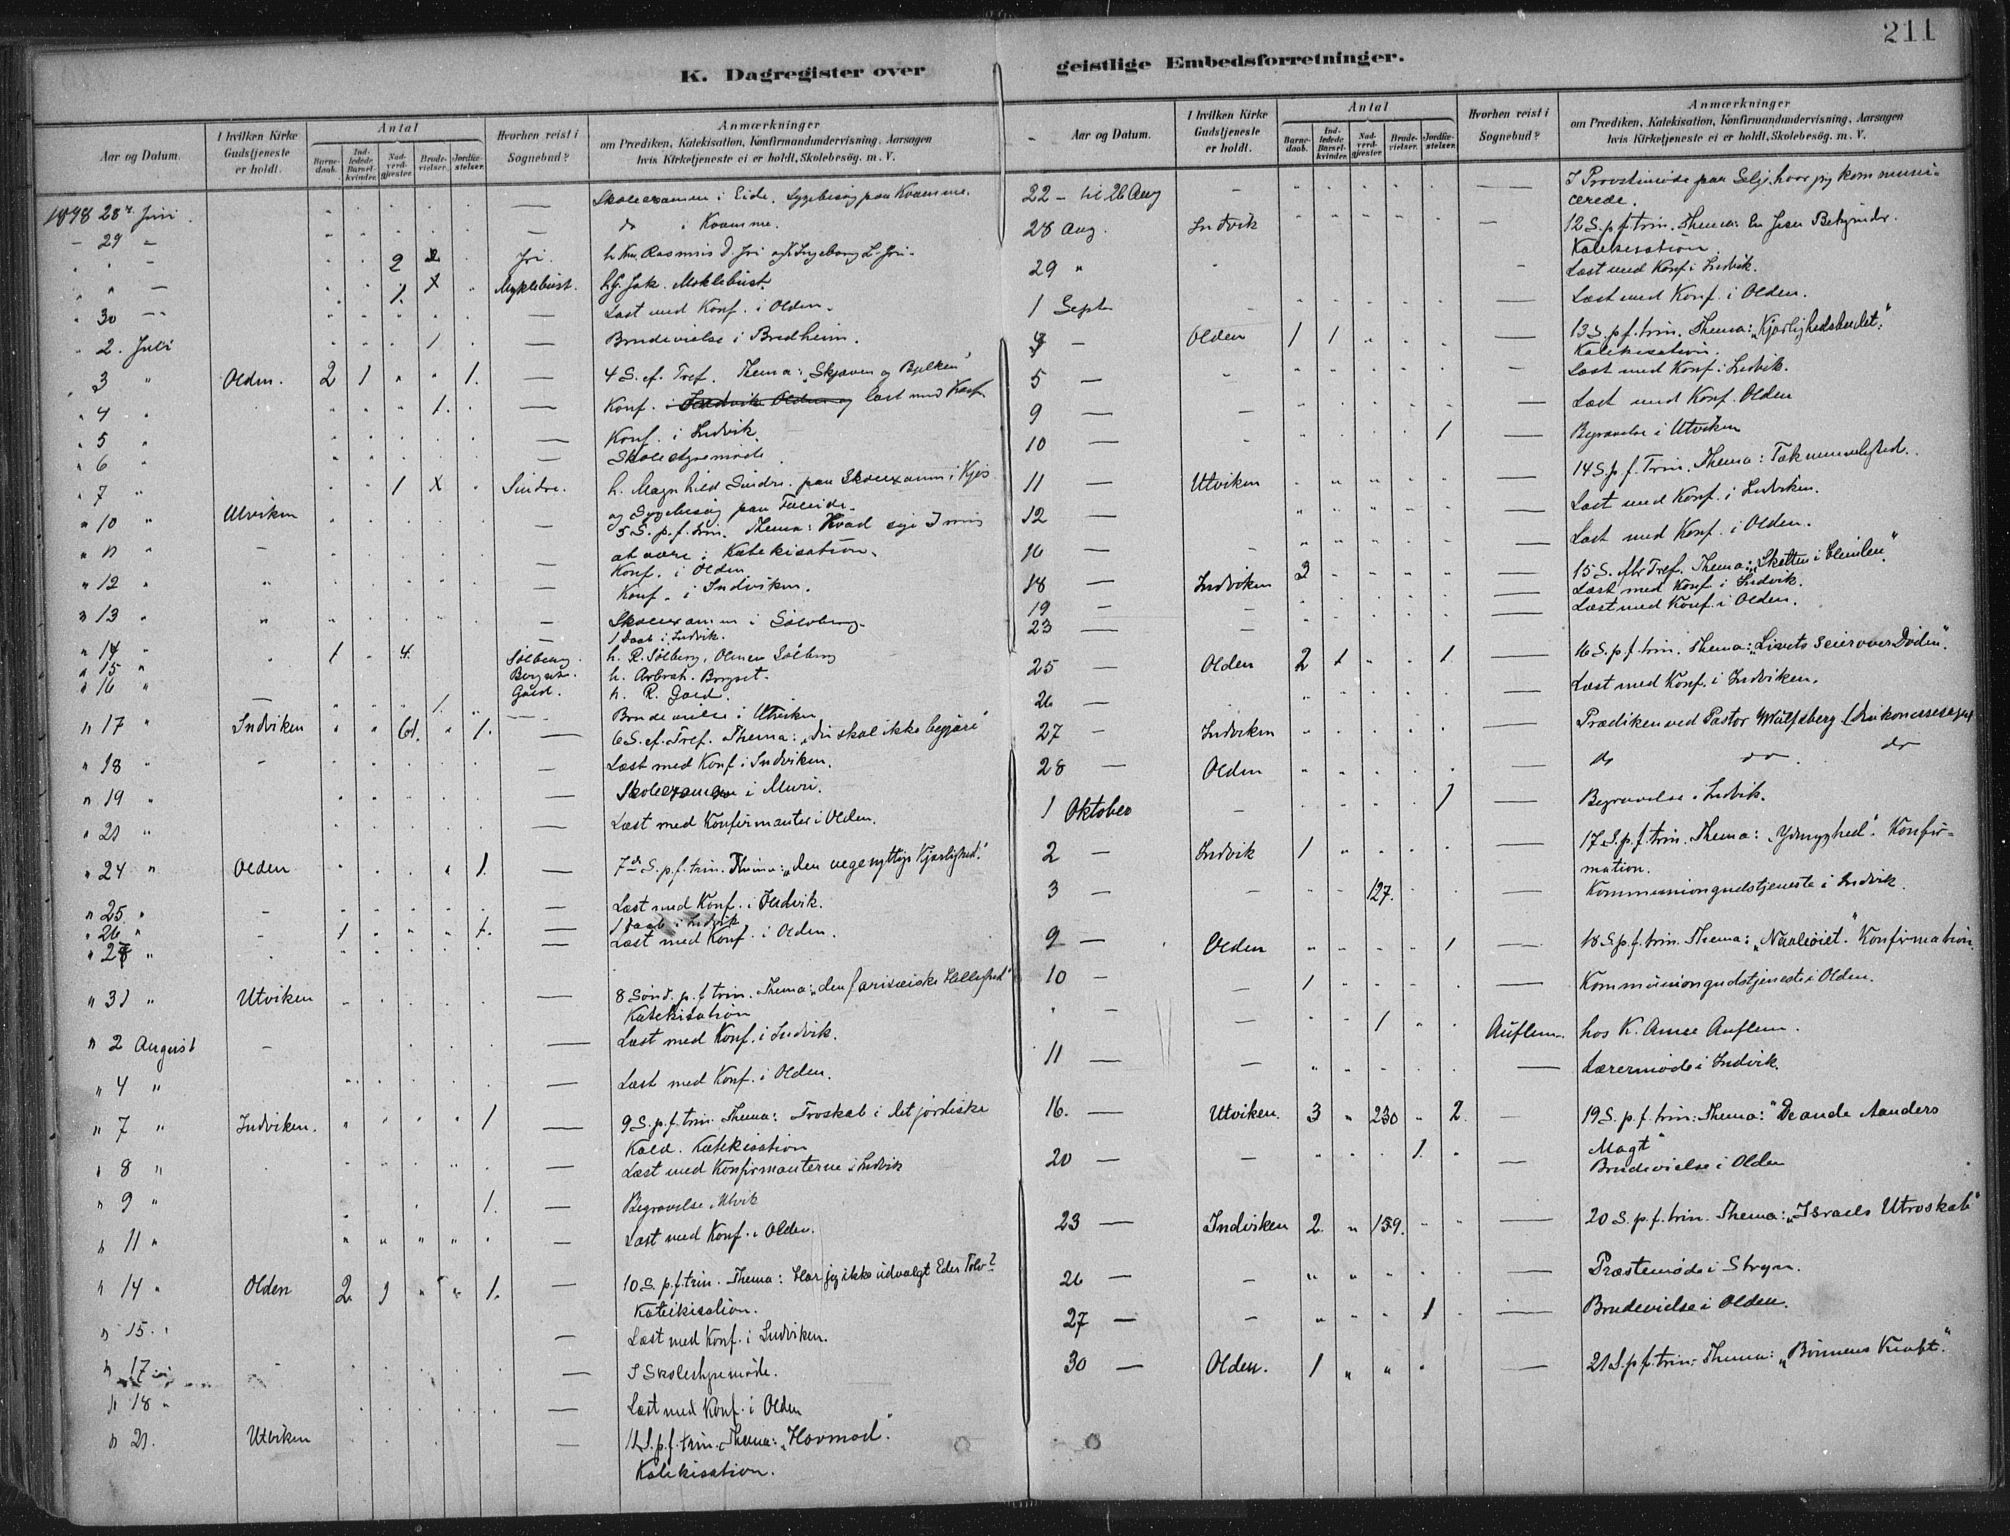 211
K. Dagregister over geistlige Embedsforretninger.
Aar og Datum.
I hvilken Kirke Gudstjeneste er holdt.
Antal
Barne-daab.
Ind-ledede Barsel-kvinder.
Nad-verd-gjester.
Brude-vielser.
Jordfæ-stelser.
Hvorhen reist i Sognebud?
Anmærkninger
om Prædiken, Katekisation, Konfirmandundervisning, Aarsagen
hvis Kirketjeneste ei er holdt, Skolebesøg. m. V.
1898 28 Juni Skoleexamen i Eide. Sygebesøg paa Kvamme.
" 29 " do i Kvamme.
2 Jri. h. Rasmus J. Jri og Ingeborg L. Jri.
1. Myklebust. Jak. Moklebust.
" 30 Læst med Konf. i Olden.
" 2. Juli 1 Brudevielse i Bredheim.
" 3 " Olden. 2 1 " " 1. 4 S. ef. Tref. Thema: "Skjæven og Bjelken"
" 4 " 1. Konf. i Indvik Olden og læst med Konf
" 5 " Konf. i Indvik
" 6 " Skolestyremøde.
" 7 " 1 Sindre. h. Magnhild Sindre. paa Skoleexamen i Kjøs
og Sygebesøg paa Faleide.
" 10 " Utviken 5 S. p. f. trin. Thema: Hvad sige I mig
at være: Katekisation.
" 11 " Konf. i Olden
" 12 " Konf. i Indviken.
" 13 " Skoleexamen i Sølvberg.
1 Daab i Indvik.
" 14 " 1 4. Sølberg. h. R. Sølberg, Sølberg
" 15 " Berget. h. Berget.
" 16 " Gaid. h. R. Gaid.
1 Brudevielse i Utviken
" 17 " Indviken " " 61. " 1. 6 S. ef. Tref. Thema: "Du skal ikke begjære"
" 18 " Læst med Konf. i Indviken.
" 19 " Skoleexamen i Muri.
" 21 " Læst med Konfirmanter i Olden.
" 24 " Olden 1. 7de S. p. f. trin. Thema: "den uegenyttige Kjærlighed."
" 25 " Læst med Konf. i Indvik.
" 26 " 1 1. 1 Daab i Indvik
" 28 " Læst med Konf. i Olden.
" 31 " Utviken 8 Sønd. p. f trin. Thema: "den farisæiske Hellighed"
Katekisation
" 2 August Læst med Konf. i Indvik.
" 4 " Læst med Konf. i Olden.
" 7 " Indviken. 1 9 S. p. f. trin. Thema: Troskab i det jordiske
Kald. Katekisation
" 8 " Læst med Konfirmanterne i Indvik
" 9 " 1. Begravelse i Utvik
" 11 " Læst med Konf. i Olden.
" 14 " Olden 2 1 " " 1. 10 S. p. f. trin. Thema: Har jeg ikke udvalgt Eder Tolv?
Katekisation.
" 15. " Læst med Konf. i Indviken.
" 17 " I Skolestyremøde.
" 18 " Læst med Konf. i Olden
" 21. Utviken 11 S. p. f. trin. Thema: "Hovmod."
Katekisation.
Aar og Datum.
I hvilken Kirke Gudstjeneste er holdt.
Antal
Barne-daab.
Ind-ledede Barsel-kvinder.
Nad-verd-gjester.
Brude-vielser.
Jordfæ-stelser.
Hvorhen reist i Sognebud?
Anmærkninger
om Prædiken, Katekisation, Konfirmandundervisning, Aarsagen
hvis Kirketjeneste ei er holdt, Skolebesøg. m. V.
22 - til 26 Aug I Provstimøde paa Selje, hvor jeg kommuni-
cerede.
28 Aug. Indvik 12 S. p. f. trin. Thema: En Jesu Bekjender.
Katekisation
29 " Læst med Konf. i Indvik.
1 Sept Læst med Konf. i Olden.
4 — Olden 1 1 13 S. p. f. trin. Thema: "Kjærlighedsbudet."
Katekisation.
5 — Læst med Konf. i Indvik.
9 — Læst med Konf. Olden
10 — 1 Begravelse i Utviken
11 — Utviken 14 S. p. f. Trin. Thema: Taknemmelighed.
12 — Læst med Konf. i Indviken.
16 — Læst med Konf. i Olden.
18 — Indviken 2 15 S. Thema: "Skatten i Himlen."
19 — Læst med Konf. i Indvik.
23 — Læst med Konf. i Olden.
25 — Olden 2 1 " " 1 16 S. p. f. trin. Thema: "Livets Seier over Døden."
26 — Læst med Konf. i Indviken.
27 — Indviken Prædiken ved Pastor Wulfsberg (Diakonissesagen)
28 — Olden do do do
1 Oktober 1 Begravelse i Indvik.
2 — Indvik 1 17 S. p. f. trin. Thema: "Ydmyghed". Konfir-
mation.
3 — 127. Kommuniongudstjeneste i Indvik.
9 — Olden 1 18 S. p. f. trin. Thema: "Naaleøiet." Konfirmation.
10 — 1 Kommuniongudstjeneste i Olden.
" 1 Auflem hos K. Auflem.
11 — Lærermøde i Indvik.
16. — Utviken. 3 " 230 " 2. 19 S. p. f. trin. Thema: "De onde Aanders
Magt"
20 — 1 Brudevielse i Olden
23 — Indviken 2 " 159. 20 S. p. f. trin. Thema: "Israels Utroskab"
26 — Præstemøde i Stryn.
27 — 1 Brudevielse i Olden.
30 — Olden. 1 21 S. p. f. trin. Thema: "Bønnens Kraft."